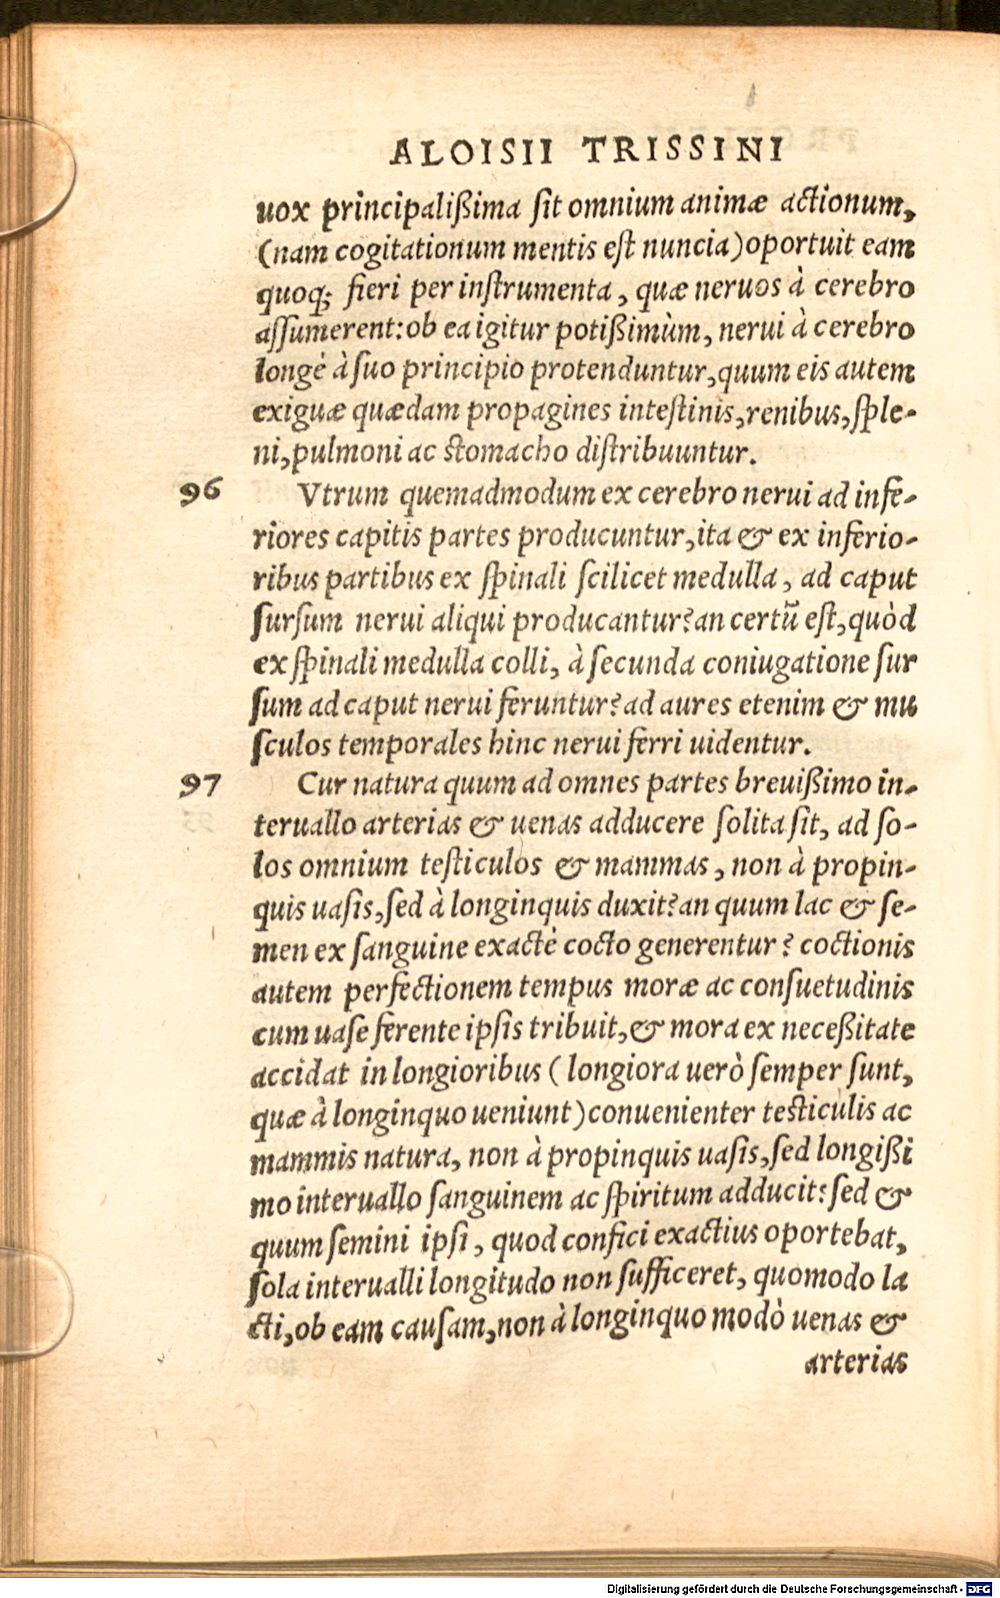 ALOISII TRISSINI
uox principalißima ſit omnium animæ actionum,
(nam cogitationum mentis eſt nuncia) oportuit eam
quoq; fieri per inſtrumenta, quæ neruos à cerebro
aſſumerent: ob ea igitur potißimùm, nerui à cerebro
longè à ſuo principio protenduntur, quum eis autem
exiguæ quædam propagines inteſtinis, renibus, ſple-
ni, pulmoni ac ſtomacho diſtribuuntur.
96 Vtrum quemadmodum ex cerebro nerui ad infe-
riores capitis partes producuntur, ita & ex inferio-
ribus partibus ex ſpinali ſcilicet medulla, ad caput
ſurſum nerui aliqui producantur? an certũ eſt, quòd
ex ſpinali medulla colli, à ſecunda coniugatione ſur
ſum ad caput nerui feruntur? ad aures etenim & mu
ſculos temporales hinc nerui ferri uidentur.
97 Cur natura quum ad omnes partes breuißimo in-
teruallo arterias & uenas adducere ſolita ſit, ad ſo-
los omnium teſticulos & mammas, non à propin-
quis uaſis, ſed à longinquis duxit? an quum lac & ſe-
men ex ſanguine exactè cocto generentur? coctionis
autem perfectionem tempus moræ ac conſuetudinis
cum uaſe ferente ipſis tribuit, & mora ex neceßitate
accidat in longioribus (longiora uerò ſemper ſunt,
quæ à longinquo ueniunt) conuenienter teſticulis ac
mammis natura, non à propinquis uaſis, ſed longißi
mo interuallo ſanguinem ac ſpiritum adducit: ſed &
quum ſemini ipſi, quod confici exactius oportebat,
ſola interualli longitudo non ſufficeret, quomodo la
cti, ob eam cauſam, non à longinquo modò uenas &
arterias
Digitalisierung gefördert durch die Deutsche Forschungsgemeinschaft - DFG